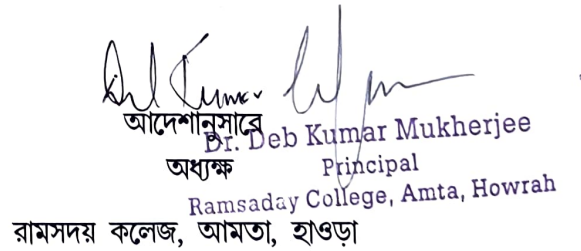 আদেশানুসারে
Dr. Deb Kumar Mukherjee
অধ্যক্ষ
Principal
Ramsaday College, Amta, Howrah
রামসদয় কলেজ, আমতা, হাওড়া